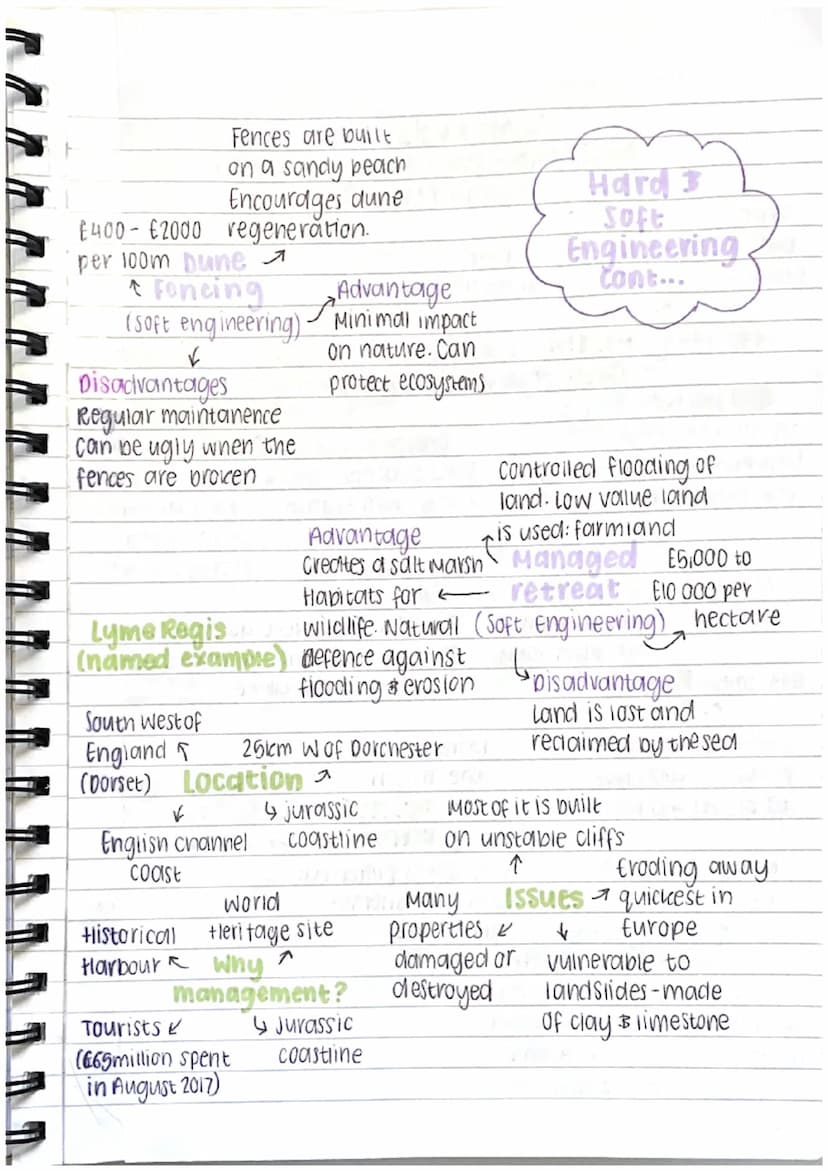 Hard &
Soft
Engineering
cont...
Fences are built
on a sandy beach
Encourages dune
regeneration.
£400 - £2000
per 100m
Dune
Fencing
(soft engineering)
Advantage
Minimal impact
on nature. Can
protect ecosystems
Disadvantages
Regular maintanence
can be ugly when the
fences are broken
Controlled flooding of
land. Low value land
is used: farmland
Managed
retreat
(Soft Engineering)
£5,000 to
£10 000 per
hectare
Advantage
Creates a salt marsh
Habitats for
wildlife. Natural
defence against
flooding & erosion
Disadvantage
Land is lost and
reclaimed by the sea
Lyme Regis
(named example)
South West of
England
(Dorset)
25km W of Dorchester
Location
English channel
coast
jurassic
coastline
Most of it is built
on unstable cliffs
Issues
Eroding away
quickest in
Europe
Many
properties
damaged or
destroyed
vulnerable to
landslides - made
of clay & limestone
World
Heritage site
Historical
Harbour
Why
management?
Tourists
(£65million spent
in August 2017)
jurassic
coastline